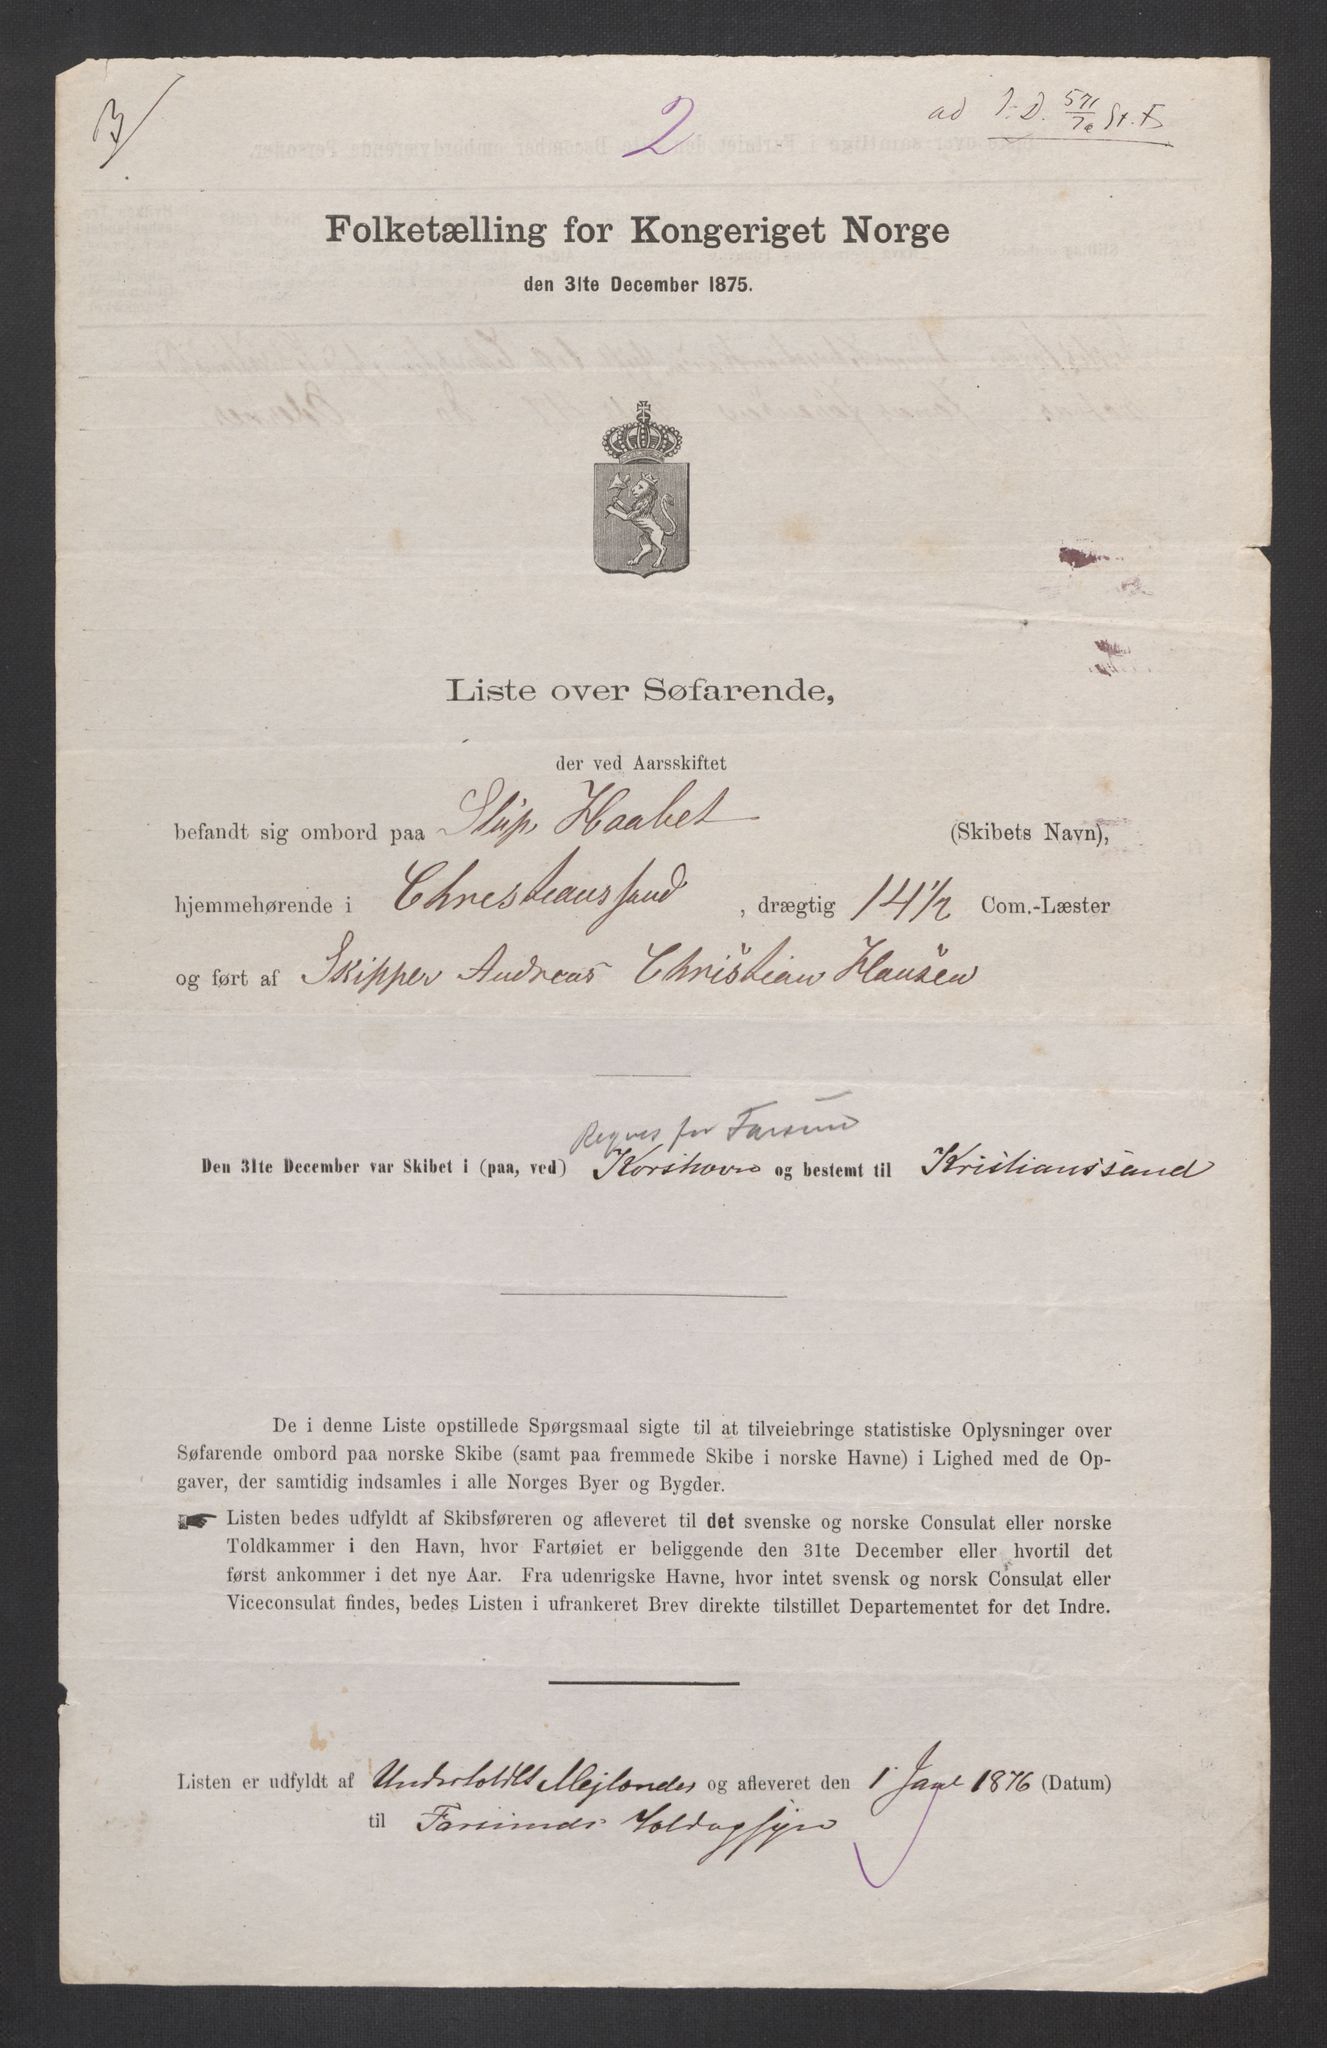 3/
2
ad J.D. 571/76 St. B
Folketælling for Kongeriget Norge
den 31te December 1875.
Liste over Søfarende,
der ved Aarsskiftet
befandt sig ombord paa Slup Haabet (Skibets Navn),
hjemmehørende i Christianssand, drægtig 14 1/2 Com.-Læster
og ført af Skipper Andreas Christian Hansen
Regnes for Farsund
Den 31te December var Skibet i (paa, ved) Korshavn og bestemt til Kristianssand
De i denne Liste opstillede Spørgsmaal sigte til at tilveiebringe statistiske Oplysninger over
Søfarende ombord paa norske Skibe (samt paa fremmede Skibe i norske Havne) i Lighed med de Op-
gaver, der samtidig indsamles i alle Norges Byer og Bygder.
☛ Listen bedes udfyldt af Skibsføreren og afleveret til det svenske og norske Consulat eller norske
Toldkammer i den Havn, hvor Fartøiet er beliggende den 31te December eller hvortil det
først ankommer i det nye Aar. Fra udenrigske Havne, hvor intet svensk og norsk Consulat eller
Viceconsulat findes, bedes Listen i ufrankeret Brev direkte tilstillet Departementet for det Indre.
Listen er udfyldt af Undertoldbt Mejlænder og afleveret den 1 Janr 1876 (Datum)
til Farsunds Toldopsyn